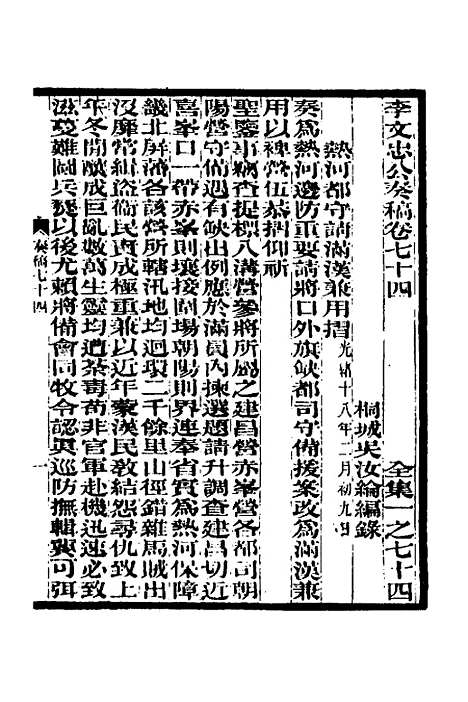 李文忠公奏稿卷七十四 全集一之七十四
桐城吳汝綸編錄
熱河都守請滿漢兼用摺 光緒十八年二月初九日
奏爲熱河邊防重要請將口外旗缺都司守備援案改爲滿漢兼
用以裨營伍恭摺仰祈
聖鑒事竊查提標八溝營參將所屬之建昌營赤峯營各都司朝
陽營守備遇有缺出例應於滿員內揀選題請升調查建昌切近
喜峯口一帶赤峯則壤接圍場朝陽則界連奉省實爲熱河保障
畿北屏藩各該營所轄汛地均迴環二千餘里山徑錯雜馬賊出
沒靡常緝盜衞民責成極重兼以近年蒙漢民教結怨尋仇致上
年冬間釀成巨亂數萬生靈均遭荼毒苟非官軍赴機迅速必致
滋蔓難圖兵燹以後尤賴將備會同牧令認眞巡防撫輯冀可弭
奏稿七十四
一